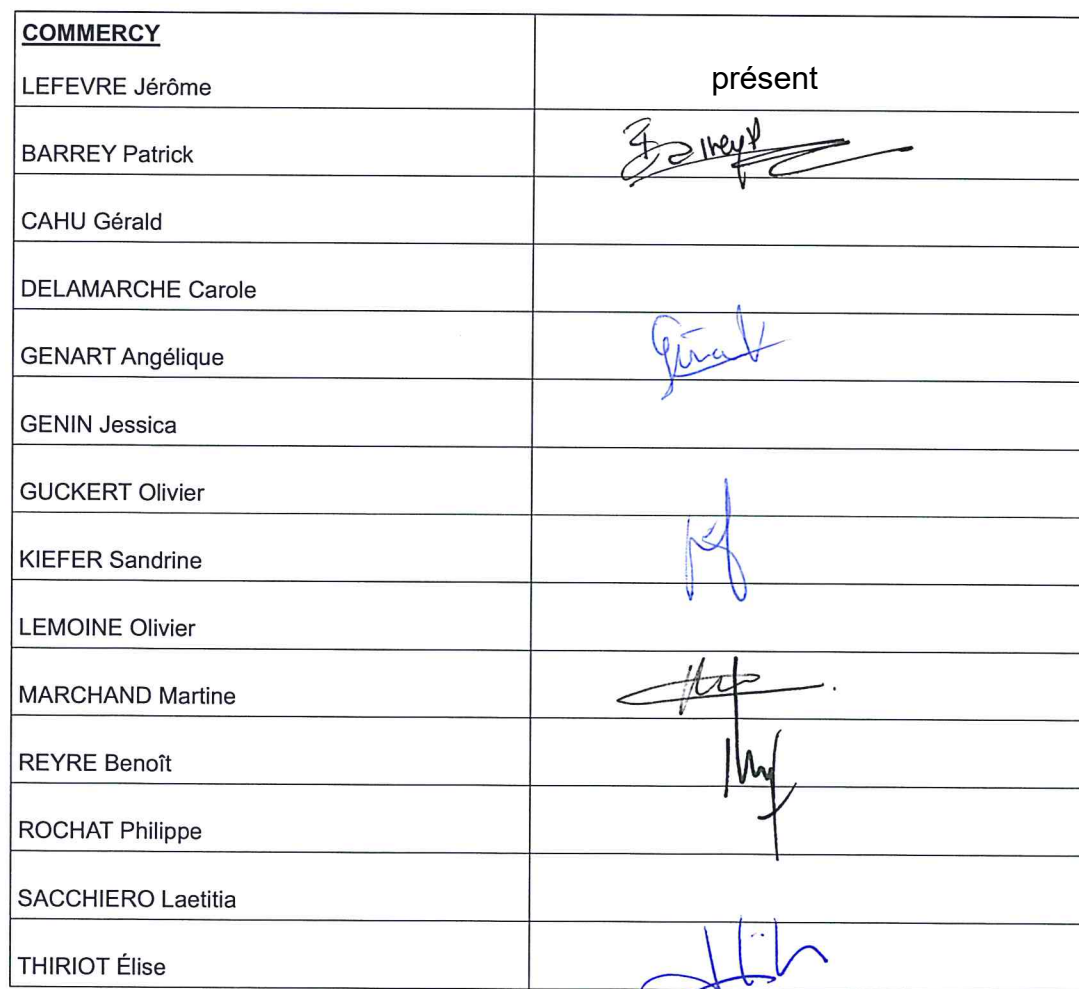 COMMERCY
LEFEVRE Jérôme présent
BARREY Patrick
CAHU Gérald
DELAMARCHE Carole
GENART Angélique
GENIN Jessica
GUCKERT Olivier
KIEFER Sandrine
LEMOINE Olivier
MARCHAND Martine
REYRE Benoît
ROCHAT Philippe
SACCHIERO Laetitia
THIRIOT Élise